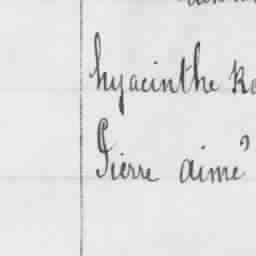 hyacinthe
Pierre aimé